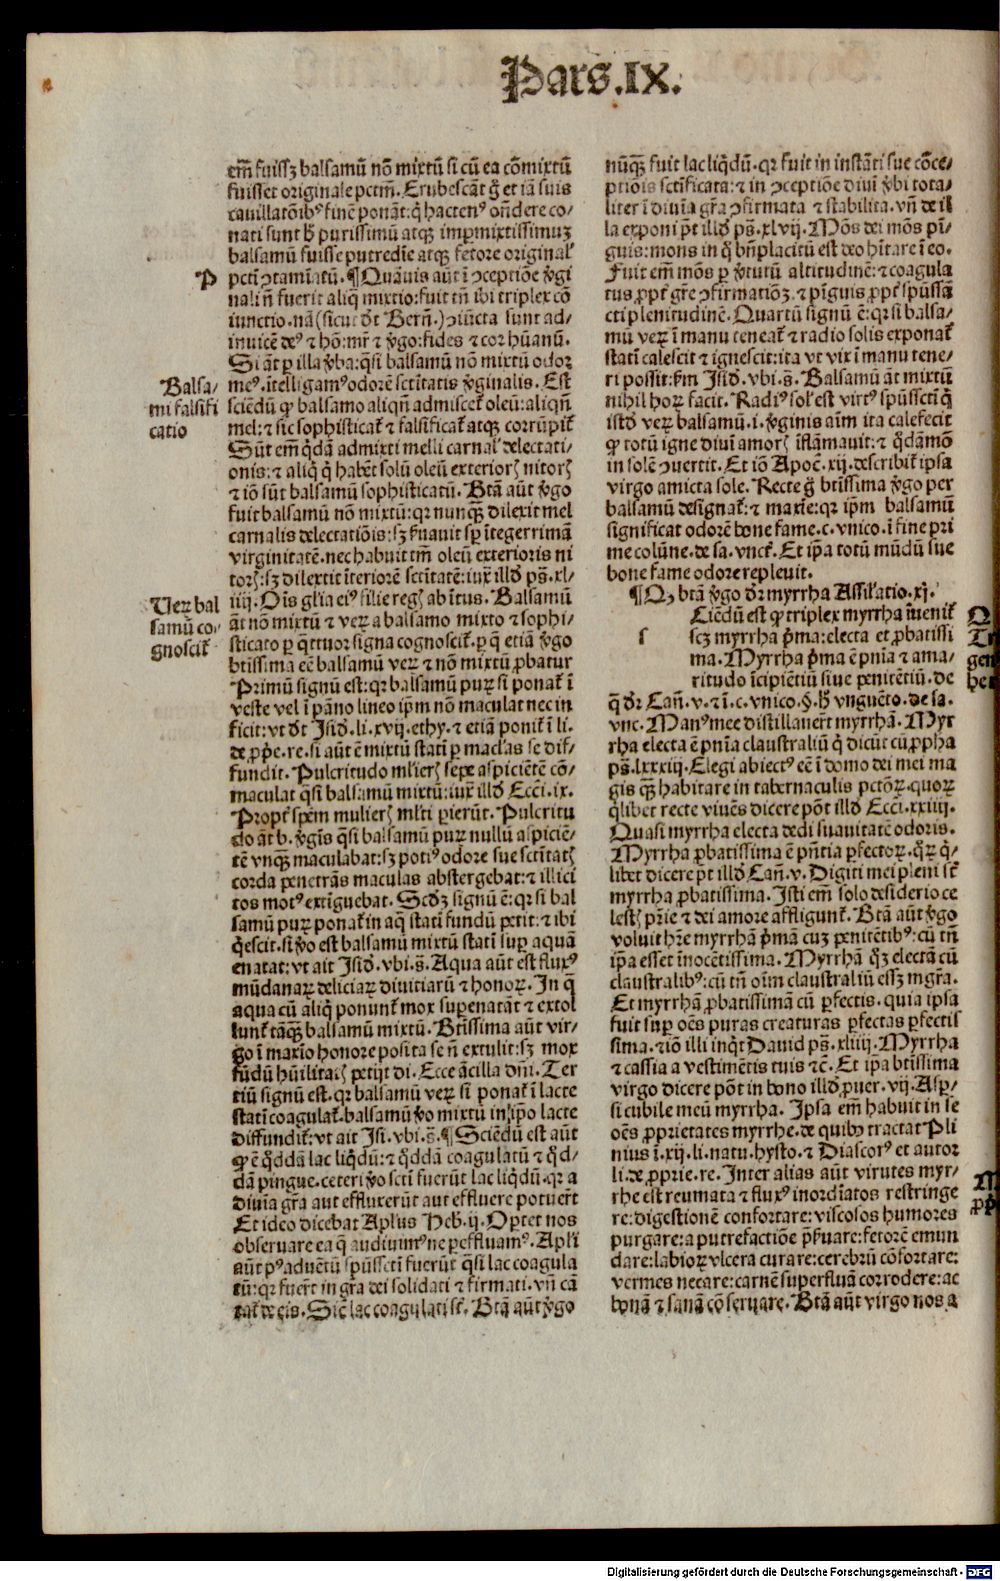 Pars.IX.
em̃ fuissȝ balsamū nō mixtū si cū ea cōmixtū
fuisset originale pctm̄. Erubescāt g̊ et iā suis
cauillatōibꝰ finē ponāt: q̇ hactenꝰ on̄dere co-
nati sunt h̄ purissimū atqȝ imꝑmixtissimuȝ
balsamū fuisse putredīe atqȝ fetore original̕
P
pcti ɔtamīatū. ¶Quāuis aūt ī ɔceptiōe v̊gi
nali n̄ fuerit aliq̄ mixtio: fuit tn̄ ibi triplex cō
iunctio. nā (sicut dt̄ Bern̄.) ɔiūcta sunt ad-
inuicē deꝰ ⁊ hō: mr̄ ⁊ v̊go: fides ⁊ cor hūanū.
Si āt ꝑ illa v̊ba: q̄si balsamū nō mixtū odoꝝ
Balsa-
mi falsifi
catio
meꝰ. ītelligamꝰ odorē sctītatis v̊ginalis. Est
sciēdū ꝙ balsamo aliqn̄ admiscet̕ oleū: aliqn̄
mel: ⁊ sic sophisticat̕ ⁊ falsificat̕ atqȝ corrūpit̕
Sūt em̄ q̇dā admixti melli carnal̕ delectati-
onis: ⁊ aliq̇ q̇ habēt solū oleū exterioris nitoris
⁊ iō sūt balsamū sophisticatū. Btā aūt v̊go
fuit balsamū nō mixtū: qr nunqȝ dilexit mel
carnalis delectatiōis: sȝ ẜuauit sꝑ ītegerrimā
virginitatē. nec habuit tm̄ oleū exterioris ni
toris: sȝ dilexit īteriorē sctītatē: iux̄ illd̄ ps̄. xl-
iiij. Oīs gl̄ia eiꝰ filie regis ab ītus. Balsamū
Veꝝ bal
samū co-
gnoscit̕
āt nō mixtū ⁊ veꝝ a balsamo mixto ⁊ sophi-
sticato ꝑ q̄ttuor signa cognoscit̕. ꝑ q̄ etiā v̊go
btīssima eē balsamū veꝝ ⁊ nō mixtū ꝓbatur
Primū signū est: qr balsamū puꝝ si ponat̕ ī
veste vel ī pāno lineo ip̄m nō maculat nec in
ficit: vt dt̄ Isid̄. li. xvij. ethy. ⁊ etiā ponit̕ ī li.
de ꝓp̄e. re. si aūt ē mixtū statī ꝑ macl̄as se dif-
fundit. Pulcritudo ml̄ieris sepe aspiciētē cō-
maculat q̄si balsamū mixtū: iux̄ illd̄ Ecci̇. ix.
Propt̕ spēm mulieris ml̄ti ꝑierūt. Pulcritu
do āt b. v̊gīs q̄si balsamū puꝝ nullū aspiciē-
tē vnqȝ maculabat: sȝ potiꝰ odore sue sctītatis
corda penetrās maculas abstergebat: ⁊ illici
tos motꝰ extīguebat. Scd̄ȝ signū ē: qr si bal
samū puꝝ ponat̕ in aq̄ statī fundū petit: ⁊ ibi
q̇escit. si v̊o est balsamū mixtū statī suꝑ aquā
enatat: vt ait Isid̄. vbi. s̄. Aqua aūt est fluxꝰ
mūdanaꝝ deliciaꝝ diuitiarū ⁊ honoꝝ. In q̄
aqua cū aliq̇ ponunt̕ mox suꝑenatāt ⁊ extol
lunt̕ tāqȝ balsamū mixtū. Btīssima aūt vir-
go ī maxīo honore posita se n̄ extulit: sȝ mox
fūdū hūilitatis petijt di. Ecce ācilla dn̄i. Ter
tiū signū est. qr balsamū veꝝ si ponat̕ ī lacte
statī coagulat̕. balsamū v̊o mixtū in ip̄o lacte
diffundit̕: vt ait Isi. vbi. s̄. ¶Sciēdū est aūt
ꝙ ē q̊ddā lac liq̇dū: ⁊ q̊ddā coagulatū ⁊ q̊d-
dā pingue. ceteri v̊o scti fuerūt lac liq̇dū. qr a
diuīa gr̄a aut effluxerūt aut effluere potuer̄t
Et ideo dicebat Apl̄us Heb̄. ij. Optet nos
obseruare ea q̄ audiuimꝰ ne ꝑeffluamꝰ. Apl̄i
aūt pꝰ aduētū sp̄ussc̄ti fuerūt q̄si lac coagula
tū: qr fuer̄t in gr̄a dei solidati ⁊ firmati. vn̄ cā
tat̕ de eis. Sic̄ lac coagulati st̄. Btā aūt v̊go
nūqȝ fuit lac liq̇dū. qr fuit in instāti sue cōce-
ptiōis sctīficata: ⁊ in ɔceptiōe diuī v̊bi tota-
liter ī diuīa gr̄a ɔfirmata ⁊ stabilita. vn̄ de il
la exponi pt̄ illd̄ ps̄. xlvij. Mōs dei mōs pī-
guis: mons in q̊ bn̄placitū est deo hītare ī eo.
Fuit em̄ mōs ꝑ v̊tutū altitudinē: ⁊ coagula
tus ꝓpt̕ gr̄e ɔfirmatiōȝ. ⁊ pīguis ꝓpt̕ sp̄ussā
cti plenitudinē. Quartū signū ē: qr si balsa-
mū veꝝ ī manu teneat̕ ⁊ radio solis exponat̕
statī calescit ⁊ ignescit: ita vt vix ī manu tene-
ri possit: ẜm Isid̄. vbi. s̄. Balsamū āt mixtū
nihil hoꝝ facit. Radiꝰ sol̕ est virtꝰ sp̄ussc̄ti q̇
istd̄ veꝝ balsamū. i. v̊ginis aīm ita calefecit
ꝙ totū igne diuīi amoris īflāmauit: ⁊ q̊dāmō
in solē ɔuertit. Et iō Apoc̄. xij. describit̕ ipsa
virgo amicta sole. Recte g̊ btīssima v̊go per
balsamū designat̕: ⁊ maxīe: qr ip̄m balsamū
significat odorē bone fame. c. vnico. ī fine pri
me colūne. de sa. vnct̄. Et ip̄a totū mūdū sue
bone fame odore repleuit.
¶Qȝ btā v̊go dr̄ myrrha Assil̄atio. xij.
s
Ciēdū est ꝙ triplex myrrha īuenit̕
scȝ myrrha p̄ma: electa et ꝓbatissi
ma. Myrrha p̄ma ē pn̄ia ⁊ ama-
ritudo īcipiētiū siue penitētiū. de
q̄ dr̄ Cān. v. ⁊ ī. c. vnico. §. h̄ vnguēto. de sa.
vnc. Manꝰ mee distillauer̄t myrrhā. Myr
rha electa ē pn̄ia claustraliū q̇ dicūt cū ꝓpha
ps̄. lxxxiij. Elegi abiectꝰ eē ī domo dei mei ma
gis qȝ habitare in tabernaculis pctōꝝ. quoꝝ
q̇libet recte viuēs dicere pōt illd̄ Ecci̇. xxiiij.
Quasi myrrha electa dedi suauitatē odoris.
Myrrha ꝓbatissima ē pn̄tia ꝑfectoꝝ. q̊ꝝ q̇-
libet dicere pt̄ illd̄ Cān. v. Digiti mei pleni st̄
myrrha ꝓbatissima. Isti em̄ solo desiderio ce
lestis pr̄ie ⁊ dei amore affligunt̕. Btā aūt v̊go
voluit hr̄e myrrhā p̄mā cuȝ penitētibꝰ: cū tn̄
ip̄a esset īnocētissima. Myrrhā q̊qȝ electā cū
claustralibꝰ: cū tn̄ oīm claustraliū essȝ mgr̄a.
Et myrrhā ꝓbatissimā cū ꝑfectis. quia ipsa
fuit suꝑ oēs puras creaturas ꝑfectas ꝑfectis
sima. ⁊ iō illi inq̇t Dauid ps̄. xliiij. Myrrha
⁊ cassia a vestimētis tuis ⁊c̄. Et ip̄a btīssima
virgo dicere pōt in bono illd̄ ꝓuer. vij. Asꝑ-
si cubile meū myrrha. Ipsa em̄ habuit in se
oēs ꝓprietates myrrhe. de quibꝰ tractat Pli
nius ī. xij. li. natu. hysto. ⁊ Diascorꝰ et autor
li. de ꝓprie. re. Inter alias aūt virutes myr-
rhe est reumata ⁊ fluxꝰ inordīatos restringe
re: digestionē confortare: viscosos humores
purgare: a putrefactiōe p̄ẜuare: fetorē emun
dare: labioꝝ vlcera curare: cerebrū cōfortare:
vermes necare: carnē superfluā corrodere: ac
bonā ⁊ sanā cōseruare. Btā aūt virgo nos a
Digitalisierung gefördert durch die Deutsche Forschungsgemeinschaft - DFG